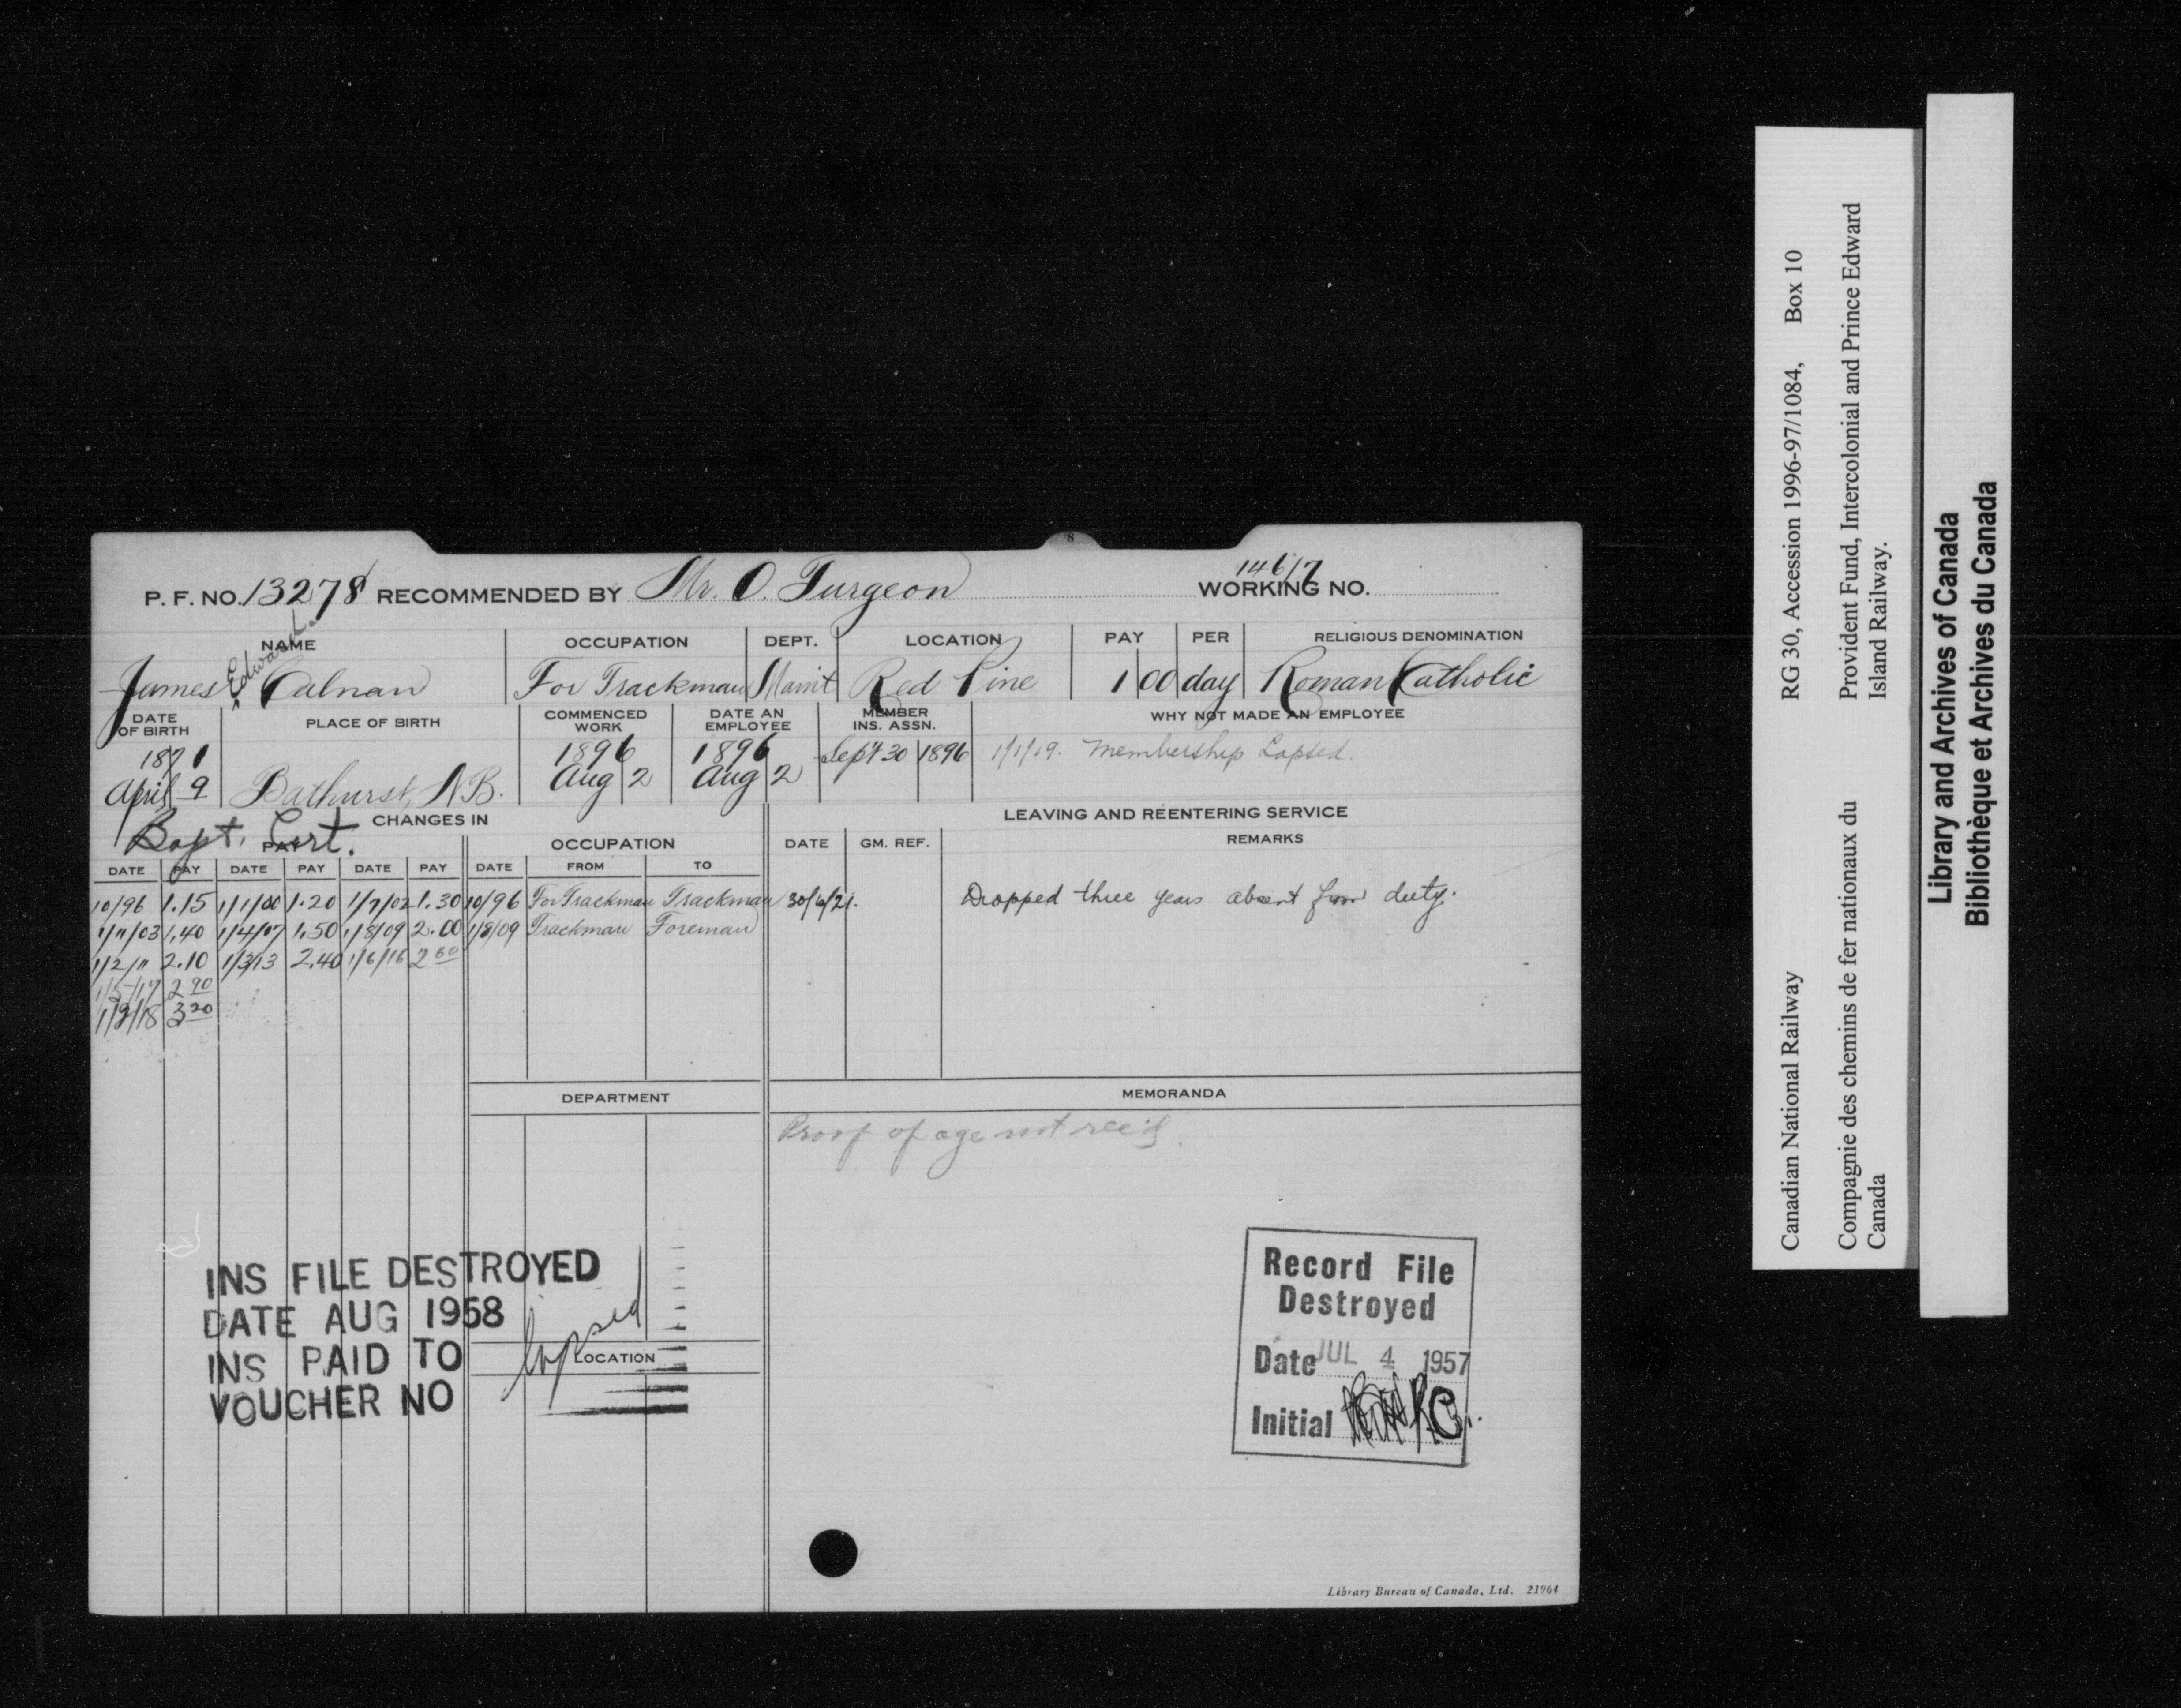 8
P. F. NO. 13278 RECOMMENDED BY Mr. O. Turgeon WORKING NO. 14617
NAME OCCUPATION DEPT. LOCATION PAY PER RELIGIOUS DENOMINATION
James Edward Calnan For Trackman Maint Red Pine 1 00 day Roman Catholic
DATE OF BIRTH PLACE OF BIRTH COMMENCED WORK DATE AN EMPLOYEE MEMBER INS. ASSN. WHY NOT MADE AN EMPLOYEE
1871 1896 1896 Sept 30 1896 1/1/19. Membership Lapsed.
April 9 Bathurst, N.B. Aug 2 Aug 2
Bapt. Cert.
CHANGES IN LEAVING AND REENTERING SERVICE
PAY OCCUPATION DATE GM. REF. REMARKS
DATE PAY DATE PAY DATE PAY DATE FROM TO
10/96 1.15 1/1/00 1.20 1/7/02 1.30 10/96 For Trackman Trackman 30/6/21. Dropped three years absent from duty.
1/11/03 1.40 1/4/07 1.50 1/8/09 2.00 1/8/09 Trackman Foreman
1/2/11 2.10 1/3/13 2.40 1/6/16 2 60
1/5/17 2 90
1/9/18 3 20
DEPARTMENT MEMORANDA
Proof of age not rec'd.
INS FILE DESTROYED
DATE AUG 1958
INS PAID TO
VOUCHER NO
Lapsed
LOCATION
Record File
Destroyed
Date JUL 4 1957
Initial
Library Bureau of Canada, Ltd. 21964
Canadian National Railway RG 30, Accession 1996-97/1084, Box 10
Compagnie des chemins de fer nationaux du Provident Fund, Intercolonial and Prince Edward
Canada Island Railway.
Library and Archives of Canada
Bibliothèque et Archives du Canada